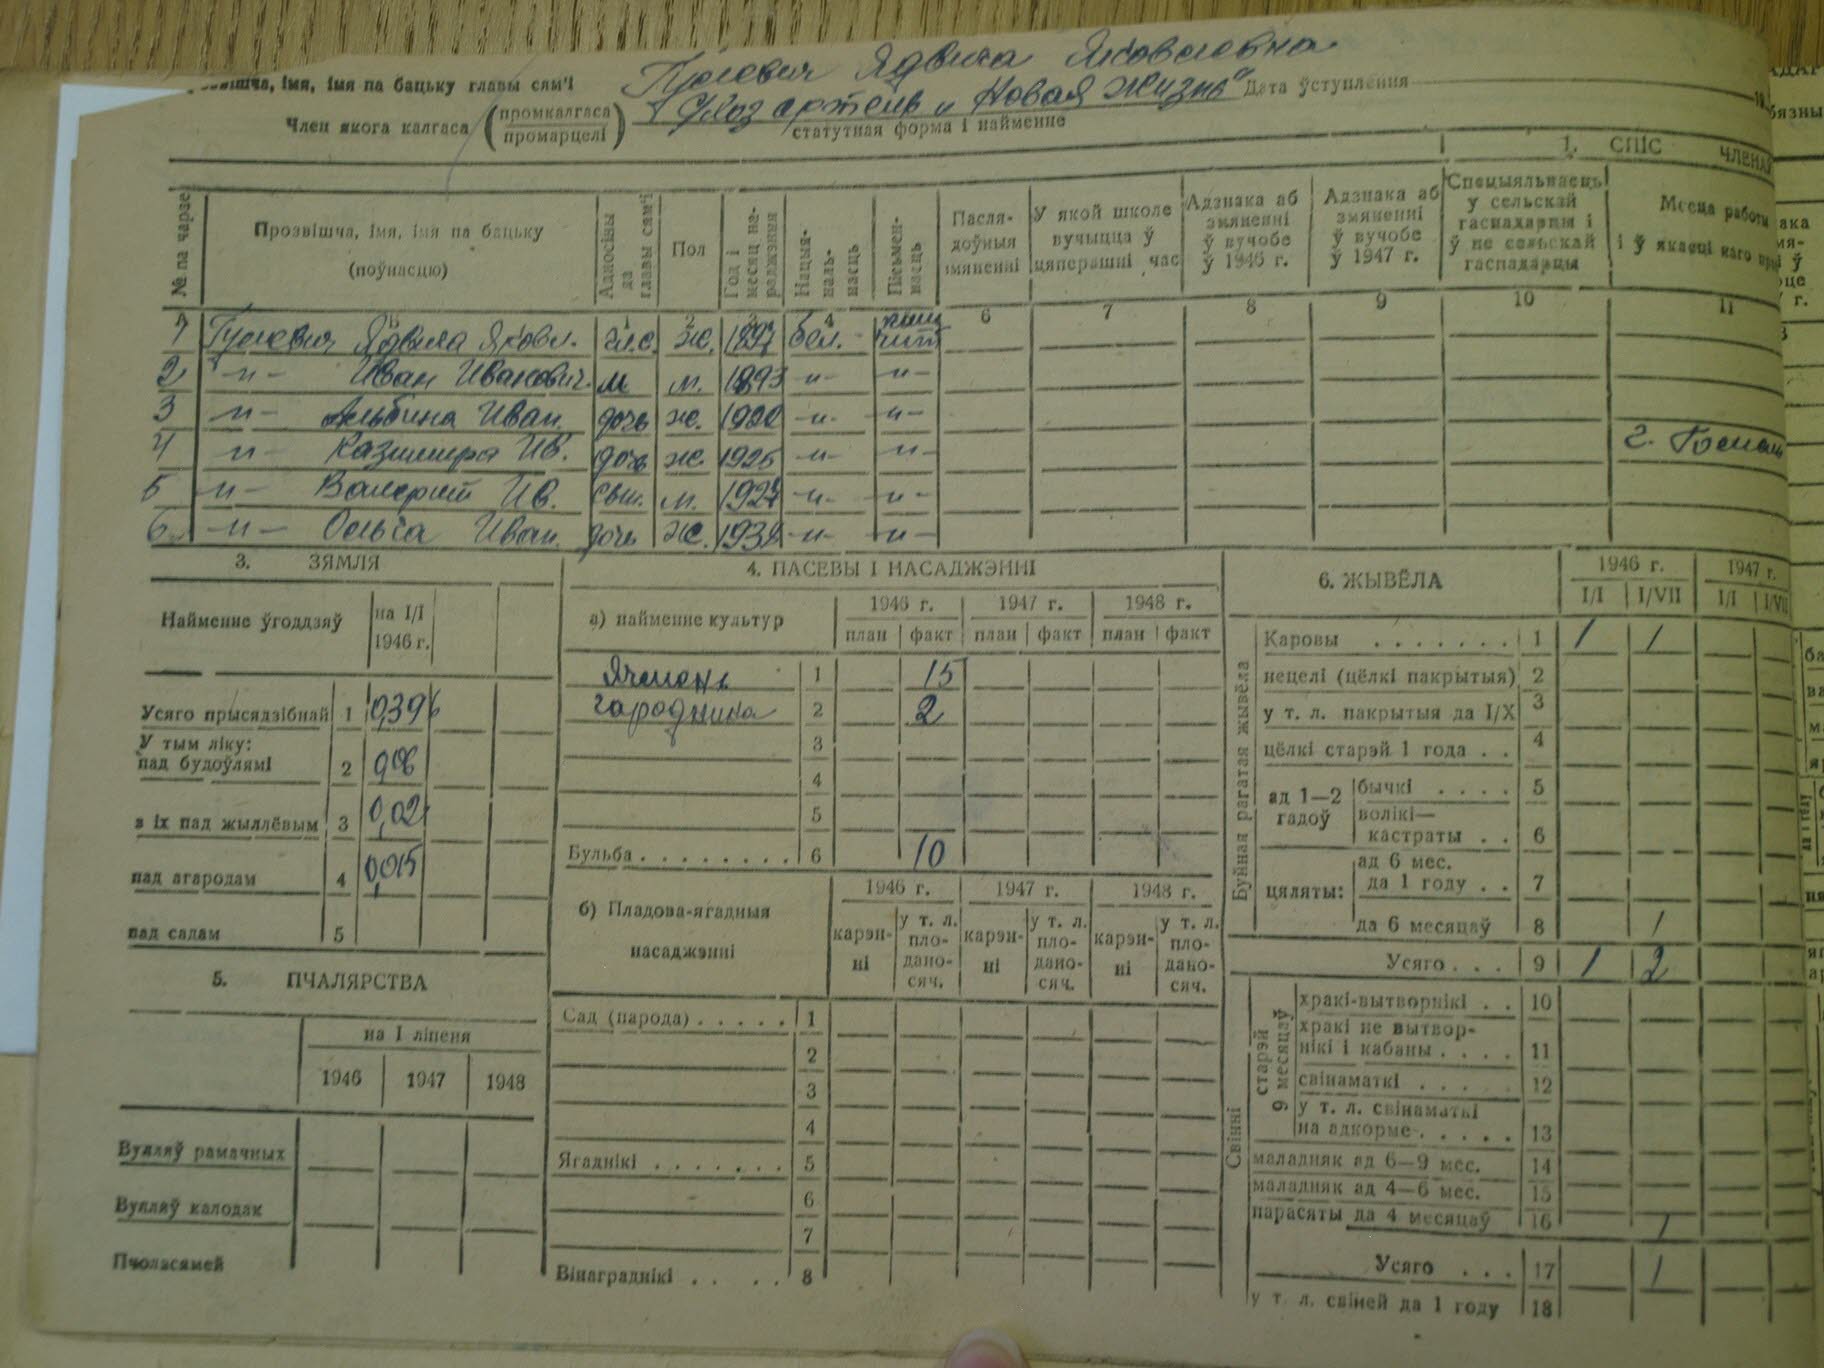 звішча, імя, імя па бацьку главы сям'і Ядвига Яковлевна
Член якога калгаса (промкалгаса промарцелі) артель „Новая Жизнь" Дата ўступлення
статутная форма і найменне
1. СПІС ЧЛЕНАЎ
№ па чарзе
Прозвішча, імя, імя па бацьку (поўнасцю)
Адносіны да главы сям'і
Пол
Год і месяц нараджэння
Нацыянальнасць
Пісьменнасць
Паслядоўныя змяненні
У якой школе вучыцца ў цяперашні час
Адзнака аб змяненні ў вучобе ў 1946 г.
Адзнака аб змяненні ў вучобе ў 1947 г.
Спецыяльнасць у сельскай гаспадарцы і ў не сельскай гаспадарцы
Месца работы і ў якасці каго
Б 1 2 3 4 6 7 8 9 10 11
1 Ядвига Яковл. гл.с. ж. 1897 бел.
2 -"- Иван Иванович м м. 1893 -"- -"-
3 -"- Альбина Иван. дочь ж. -"- -"-
4 -"- Казимира Ив. дочь ж. 1925 -"- -"- г.
5 -"- Ив. сын. м. 1927 -"- -"-
6 -"- Ольга Иван. дочь ж. -"- -"-
3. ЗЯМЛЯ
Найменне ўгоддзяў на I/I 1946 г.
Усяго прысядзібнай 1
У тым ліку:
пад будоўлямі 2
з іх пад жыллёвым 3
пад агародам 4
пад садам 5
5. ПЧАЛЯРСТВА
на I ліпеня
1946 1947 1948
Вулляў рамачных
Вулляў калодак
Пчоласямей
4. ПАСЕВЫ І НАСАДЖЭННІ
а) найменне культур 1946 г. 1947 г. 1948 г.
план факт план факт план факт
Ячмень 1 15
гароднина 2 2
3
4
5
Бульба . . . . . . . . 6 10
б) Пладова-ягадныя насаджэнні 1946 г. 1947 г. 1948 г.
карэнні у т. л. пладаносяч. карэнні у т. л. пладаносяч. карэнні у т. л. пладаносяч.
Сад (парода) . . . . . 1
2
3
4
Ягаднікі . . . . . . . 5
6
7
Вінаграднікі . . . . 8
6. ЖЫВЁЛА 1946 г. 1947 г.
I/I I/VII I/I I/VII
Буйная рагатая жывёла
Каровы . . . . . . . 1 1 1
нецелі (цёлкі пакрытыя) 2
у т. л. пакрытыя да I/X 3
цёлкі старэй 1 года . . 4
ад 1—2 гадоў бычкі . . . . 5
волікі—кастраты . . 6
цяляты: ад 6 мес. да 1 году . . 7
да 6 месяцаў 8 1
Усяго . . . 9 1 2
Свінні
старэй 9 месяцаў
хракі-вытворнікі . . 10
хракі не вытворнікі і кабаны . . . . 11
свінаматкі . . . . . 12
у т. л. свінаматкі на адкорме . . . . . 13
маладняк ад 6—9 мес. 14
маладняк ад 4—6 мес. 15
парасяты да 4 месяцаў 16 1
Усяго . . . 17 1
у т. л. свіней да 1 году 18